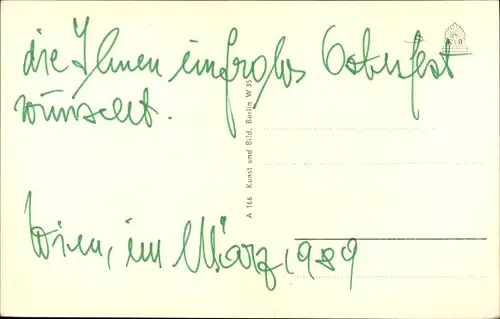 die Ihnen ein frohes Osterfest
wünscht.
Wien, im März 1989
A 166 Kunst und Bild, Berlin W 35
K B